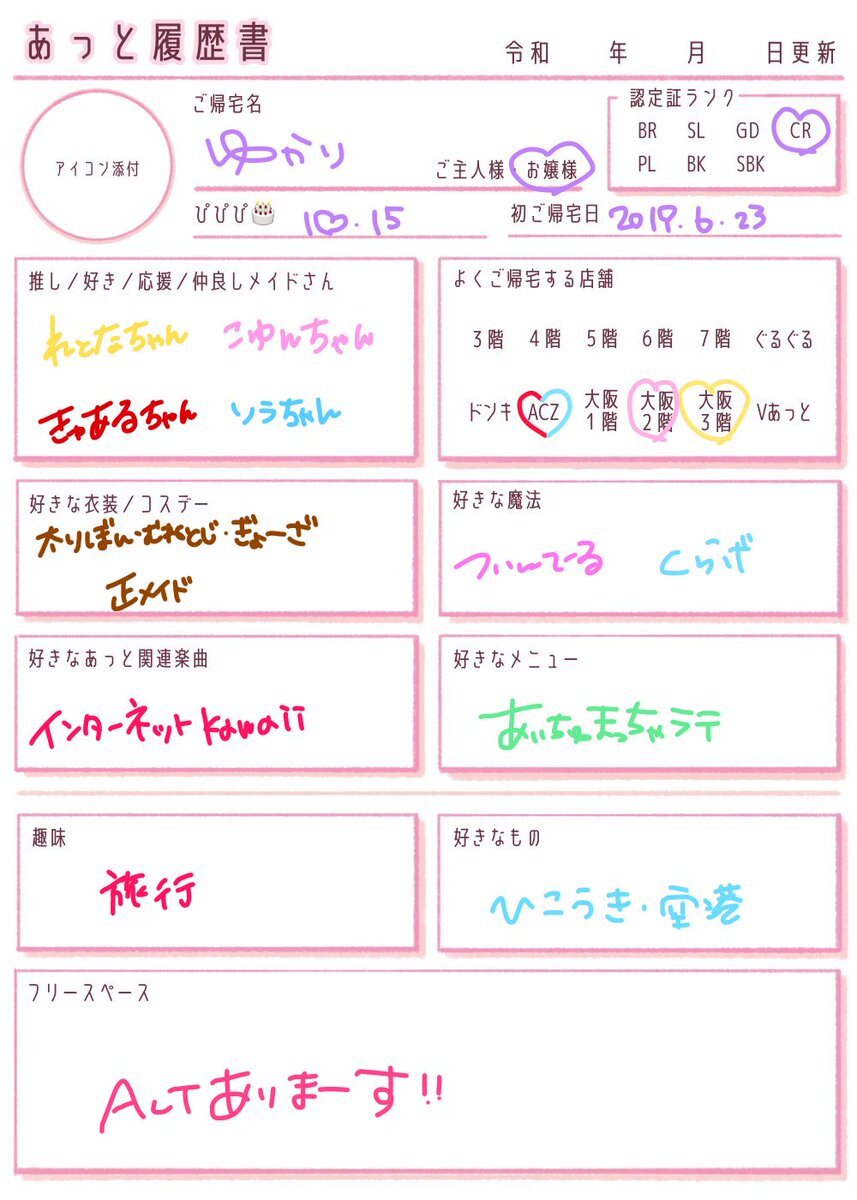 あっと履歴書
令和 年 月 日更新
アイコン添付
ご帰宅名
ゆかり
ご主人様・お嬢様
認定証ランク
BR SL GD CR
PL BK SBK
ぴぴぴ🎂 10.15
初ご帰宅日 2019.6.23
推し/好き/応援/仲良しメイドさん
れとなちゃん こゆんちゃん
きゅあるちゃん ソラちゃん
よくご帰宅する店舗
3階 4階 5階 6階 7階 ぐるぐる
ドンキ ACZ 大阪1階 大阪2階 大阪3階 Vあっと
好きな衣装/コスデー
太りぼん・むねとじ・ぎょーざ
正メイド
好きな魔法
ついんてーる くらげ
好きなあっと関連楽曲
インターネットkawaii
好きなメニュー
あいちゅまっちゃラテ
趣味
旅行
好きなもの
ひこうき・空港
フリースペース
ALTありまーす!!